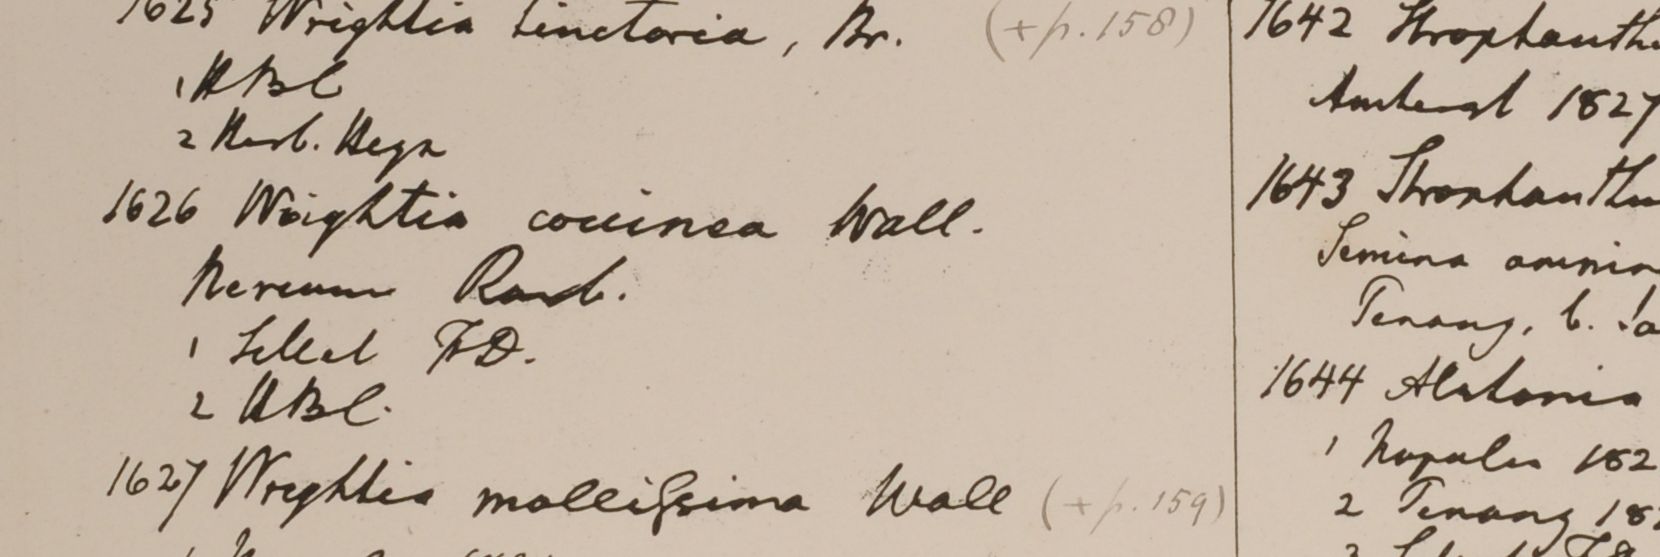 1625 Wrightia tinctoria, Br. (+p.158)
1 HBC
2 Herb. Heyn
1626 Wrightia coccinea Wall.
Nereum Roxb.
1 Sillet FD.
2 HBC.
1627 Wrightia mollissima Wall (+p.159)
1642 Strophanth
Amherst 1827
1643 Strophanthu
Semina omnin
Penang, b.
1644 Alstonia
1 Napalia 182
2 Penang 182
3